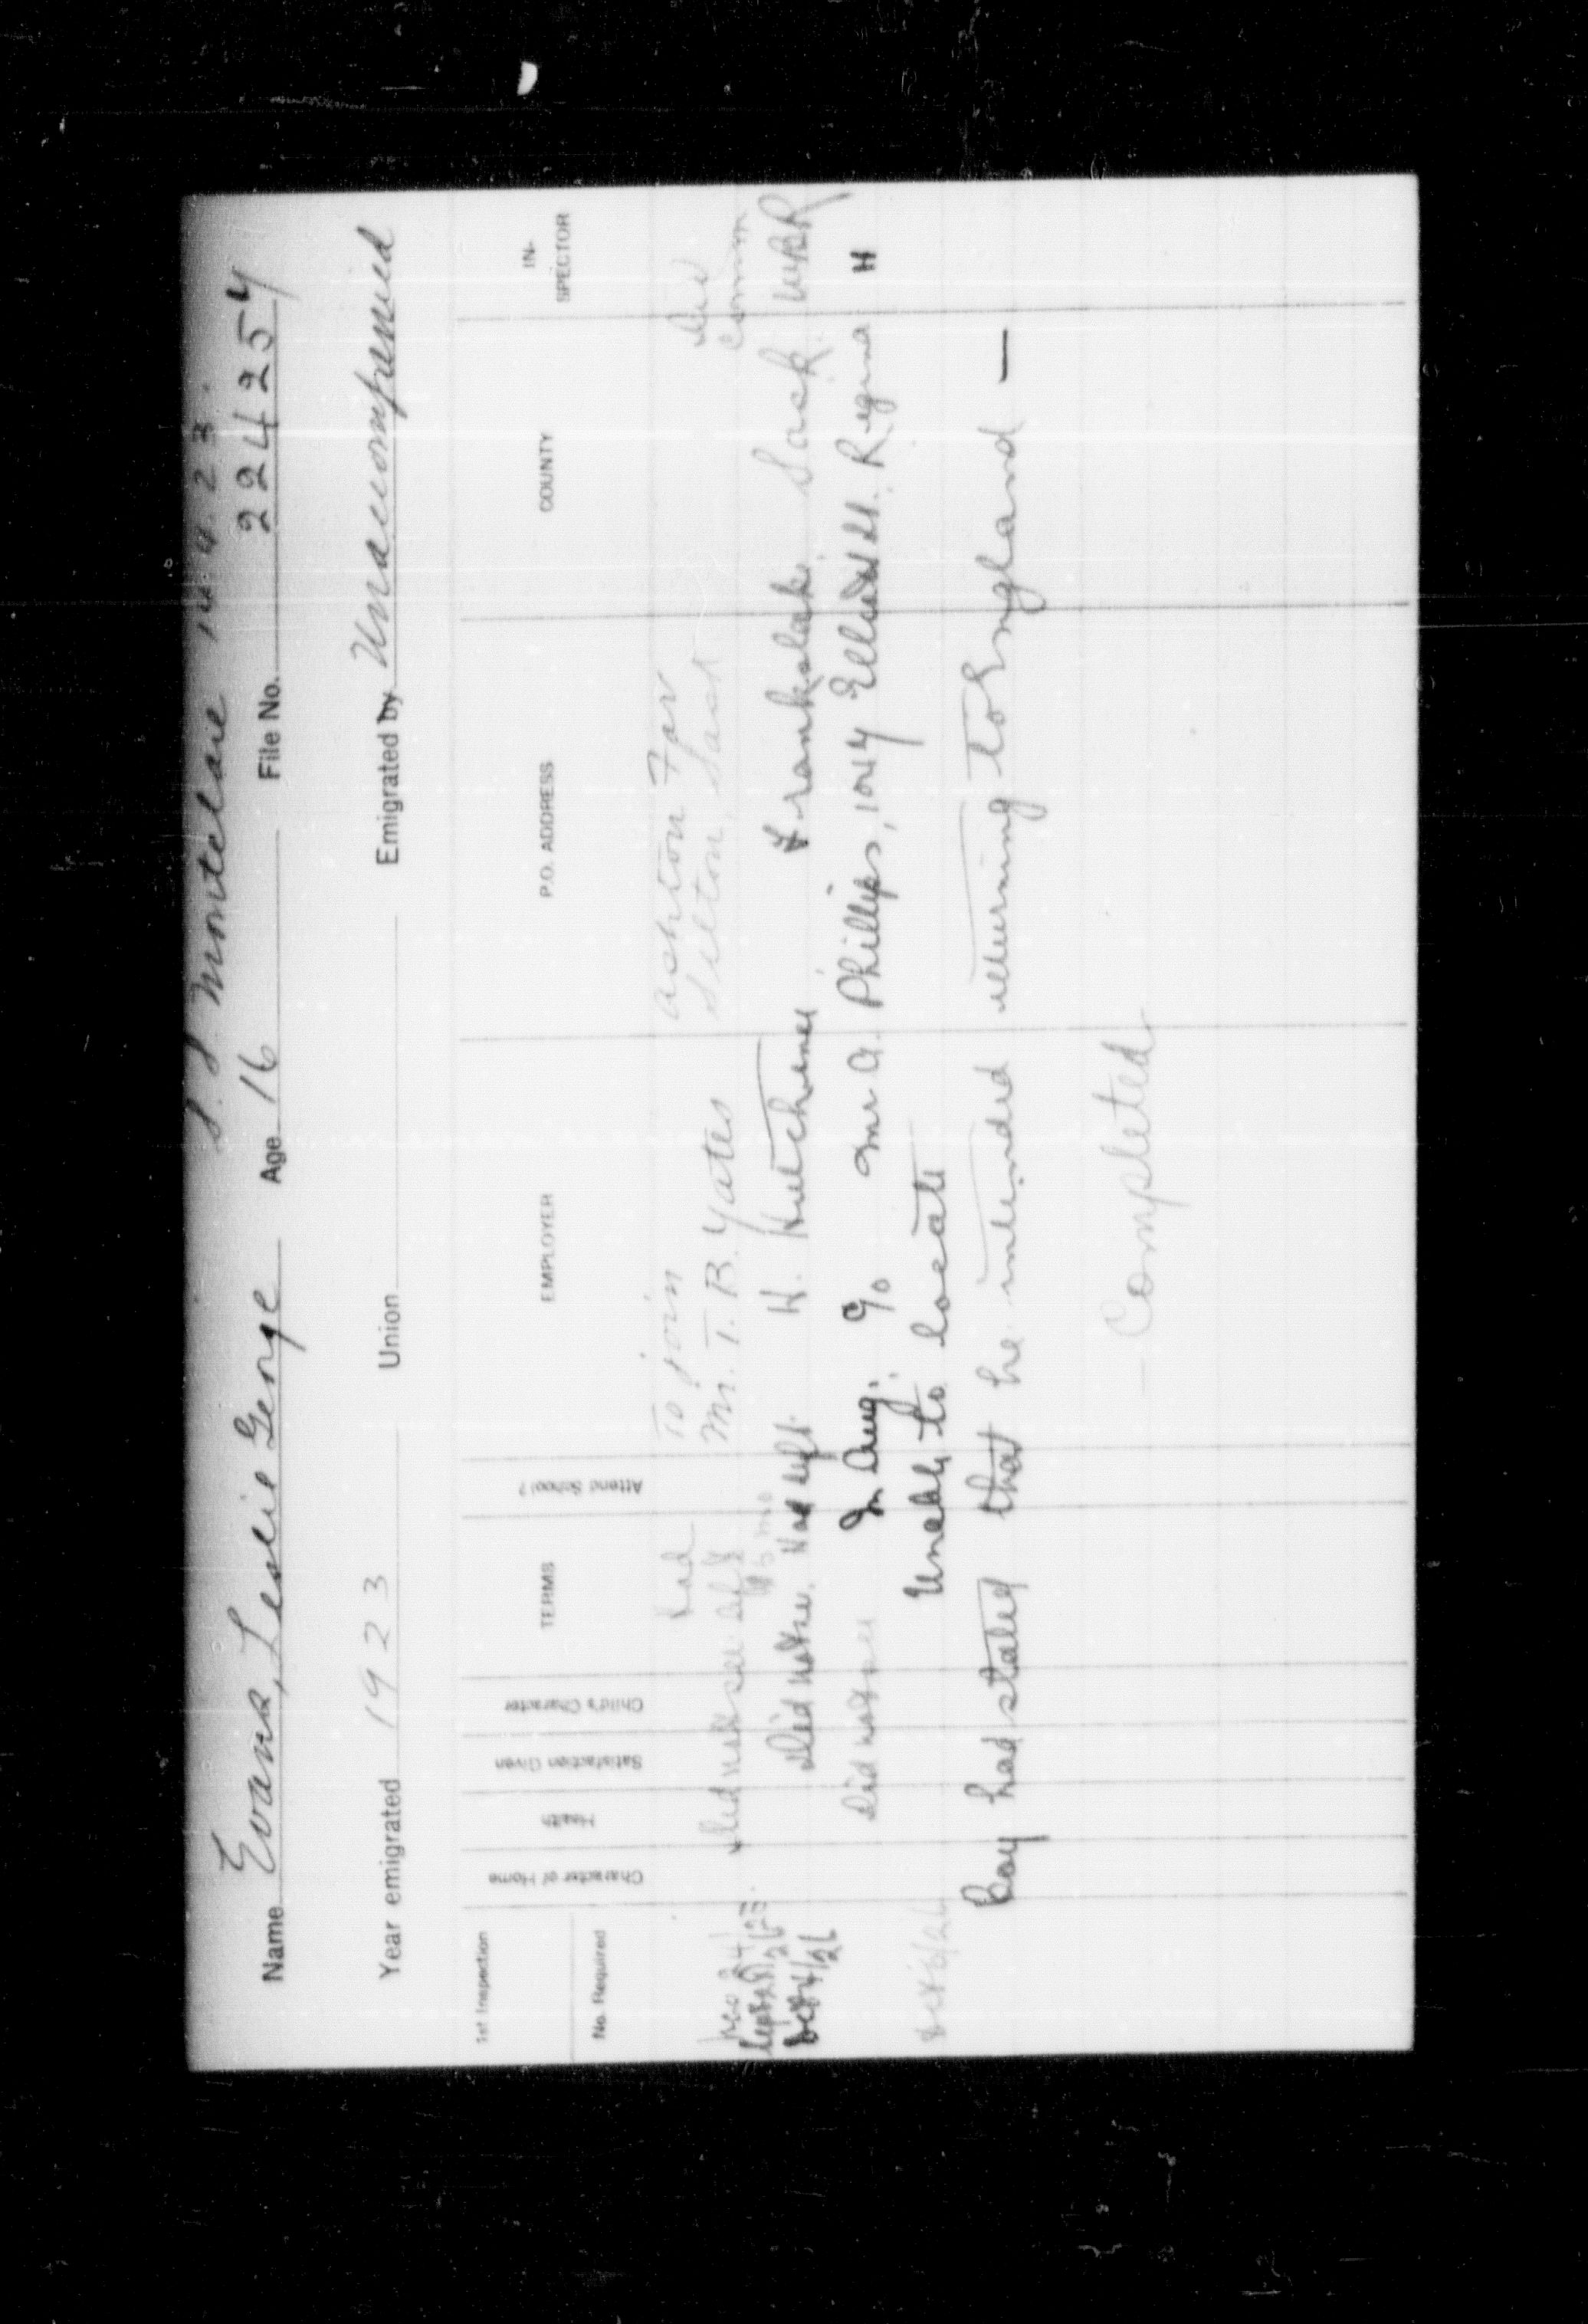 S.S. Montclare 14.9.23.
Name Evans, Leslie George Age 16 File No. 224254
Year emigrated 1923 Union Emigrated by Unaccompanied
1st Inspection
No. Required
Character of Home
Health
Satisfaction Given
Child's Character
TERMS
Attend School?
EMPLOYER
P.O. ADDRESS
COUNTY
IN-
SPECTOR
To join
Lad Ashton Far
Did not see left Mr. T. B. Yates Silton, Sask
Sept 28/25 Did not see. Had left. H. Hutchines Frankslake. Sask. WBR
Oct 4/26
Did not see In Aug. c/o Mr A. Phillips, 1044 Elliott St. Regina "
Unable to locate
Oct 6/26
Boy had stated that he intended returning to England —
Completed